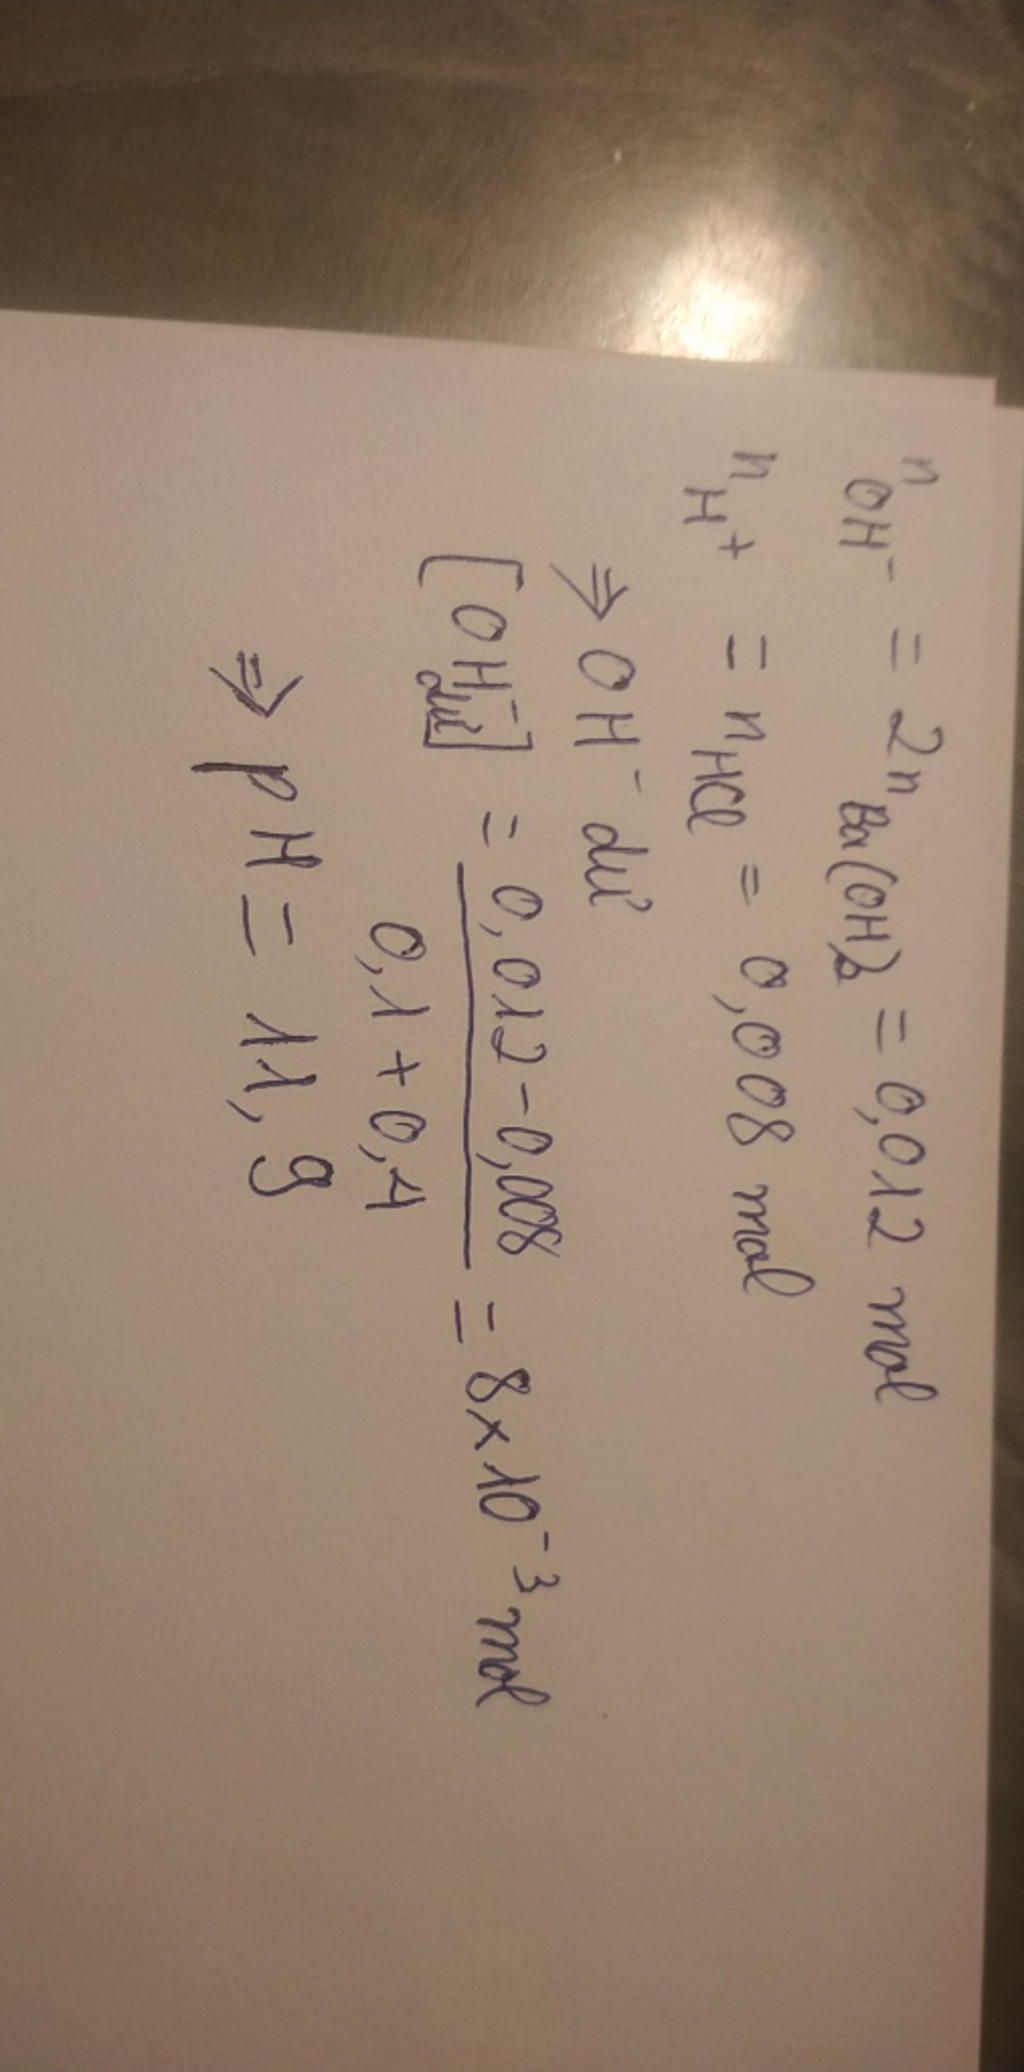 n OH⁻ = 2n Ba(OH)₂ = 0,012 mol
n H⁺ = n HCl = 0,008 mol
⇒ OH⁻ dư
[OH⁻ dư] = 0,012 - 0,008 = 8 × 10⁻³ mol
0,1 + 0,4
⇒ pH = 11,9